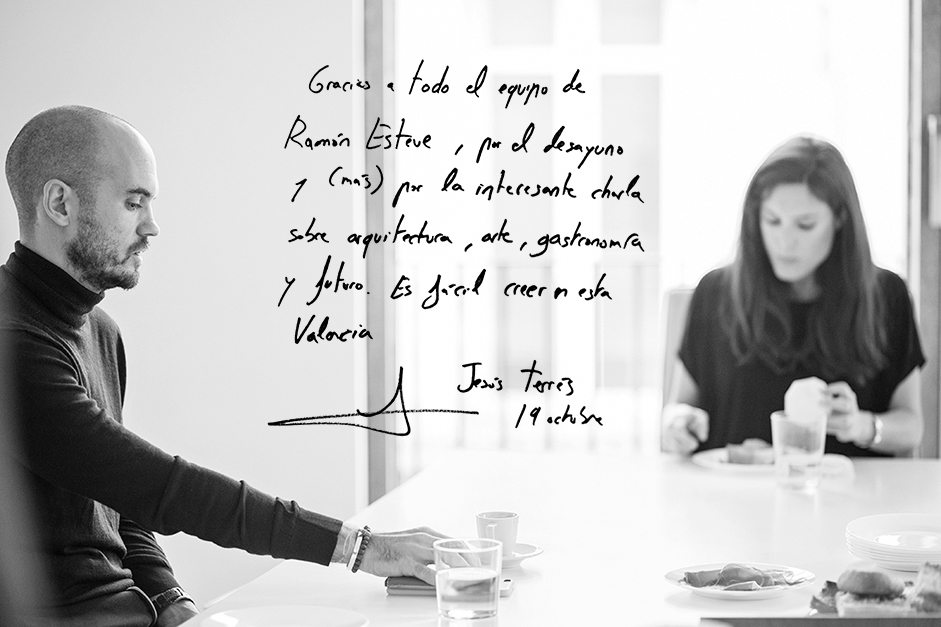 Gracias a todo el equipo de
Ramón Esteve, por el desayuno
y (más) por la interesante charla
sobre arquitectura, arte, gastronomía
y futuro. Es fácil creer en esta
Valencia
Jesús Terrés
19 octubre